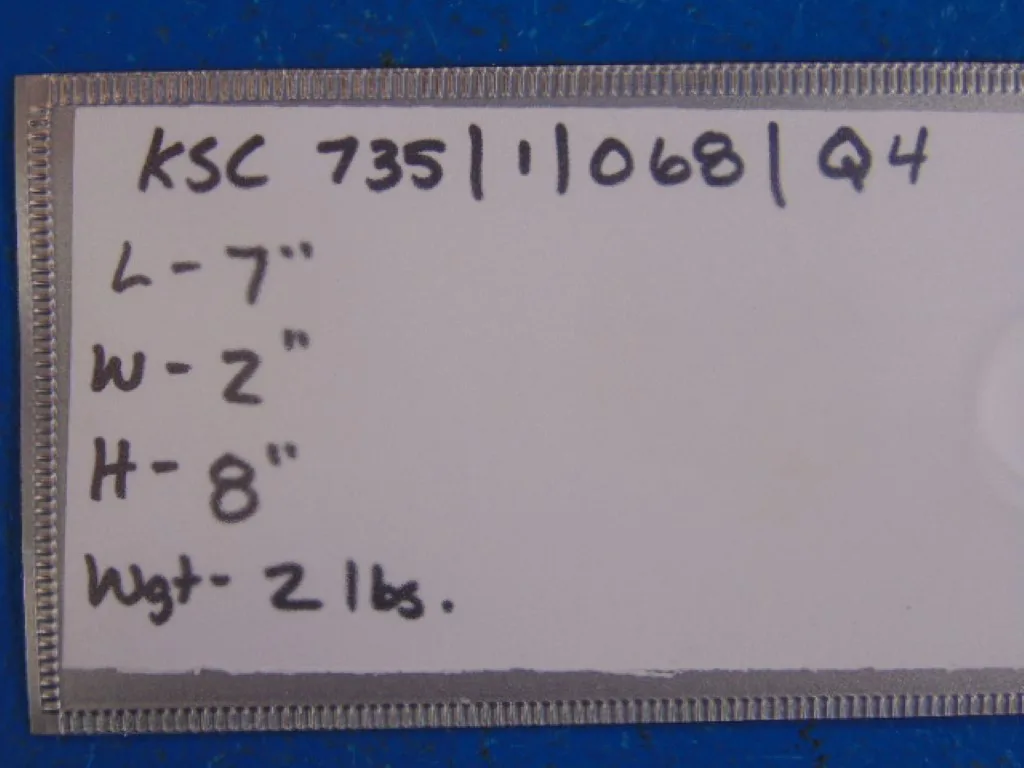 KSC 735|1|068|Q4
L-7"
W-2"
H-8"
Wgt-2 lbs.